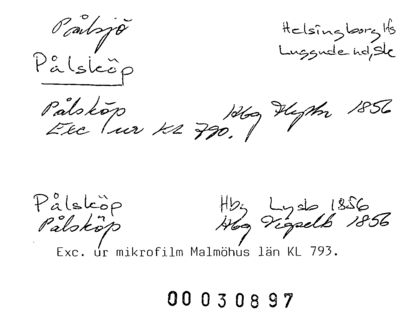 Pålsjö Helsingborg lfs
Luggude hd, Sk
Pålsköp
Pålsköp Hbg 1856
Exc ur KL 790.
Pålsköp Hbg Lysb 1856
Pålsköp Hbg 1856
Exc. ur mikrofilm Malmöhus län KL 793.
00030897